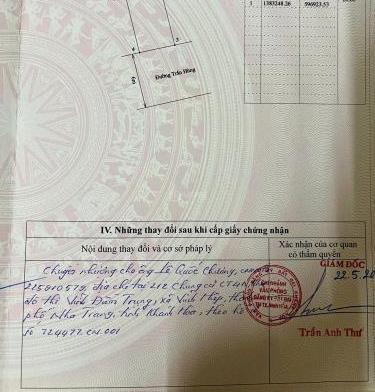 1 1383248.26 596923.53
4 3
5
Đường Trần Hùng
IV. Những thay đổi sau khi cấp giấy chứng nhận
Nội dung thay đổi và cơ sở pháp lý
Xác nhận của cơ quan
có thẩm quyền
GIÁM ĐỐC
22.5.20
Chuyển nhượng cho ông Lê Quốc Chương,
225810579, địa chỉ tại 212 Chung cư CT4
đô thị Vĩnh Điềm Trung, xã Vĩnh Hiệp, thành
phố Nha Trang, tỉnh Khánh Hòa, theo hồ
số 724477.CN.001
CHI NHÁNH
VĂN PHÒNG
ĐĂNG KÝ ĐẤT ĐAI
Trần Anh Thư